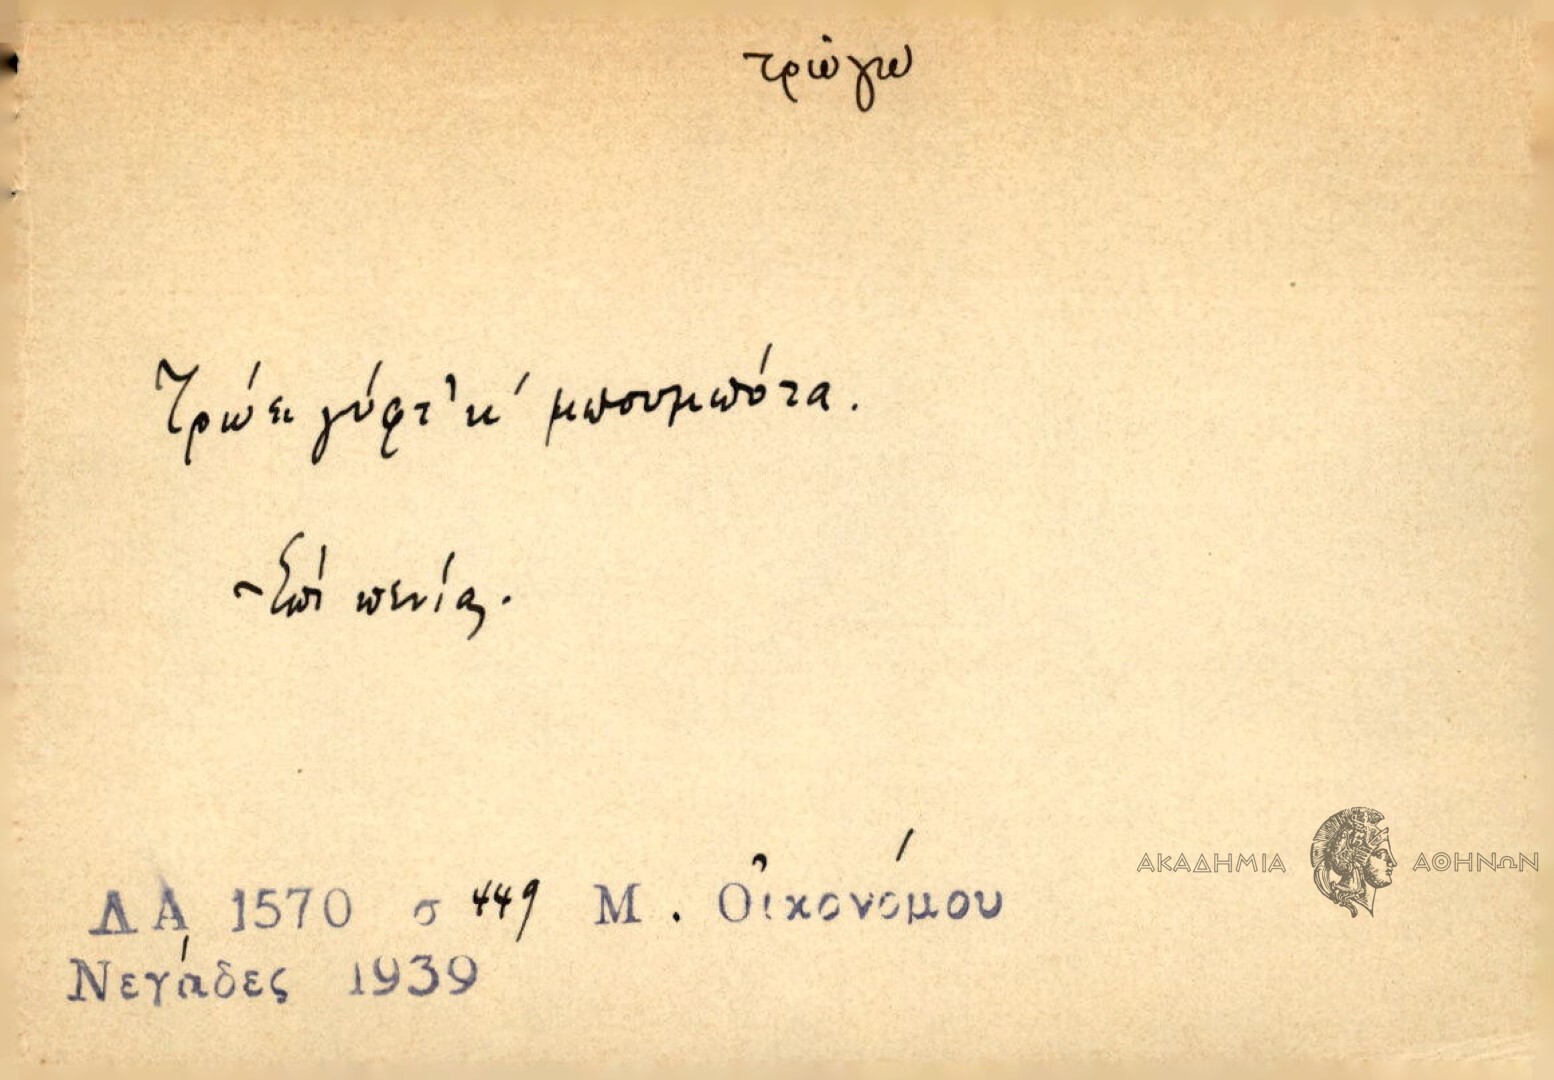 τρώγω
Τρώει γύφτ'κ' μπουμπότα.
~Επί πενίας.
ΛΑ 1570 σ 449 Μ. Οἰκονόμου
Νεγάδες 1939
ΑΚΑΔΗΜΙΑ ΑΘΗΝΩΝ